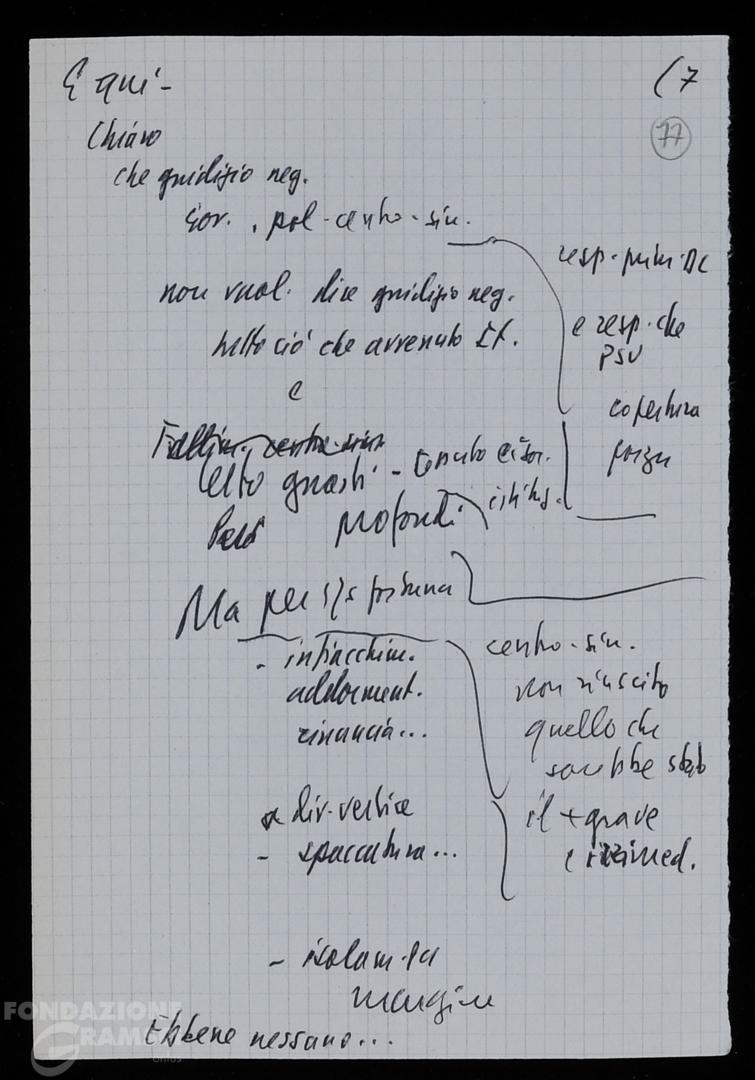 E qui -
(7
77
Chiaro
che giudizio neg.
Gov. , pol-centro-sin.
non vuol. dire giudizio neg.
tutto ciò che avvenuto It.
e
resp. prim. DC
e resp. che
PSU
copertura
Fallim. centro-sin
certo guasti - tenuto
profondi
istituz.
Ma per fortuna
- infiacchim.
addorment.
rinuncia...
- div. vertice
- spaccatura...
centro-sin.
non riuscito
quello che
sarebbe stato
il + grave
e irrimed.
- isolam.
Ebbene nessuno...
FONDAZIONE
GRAMSCI
onlus